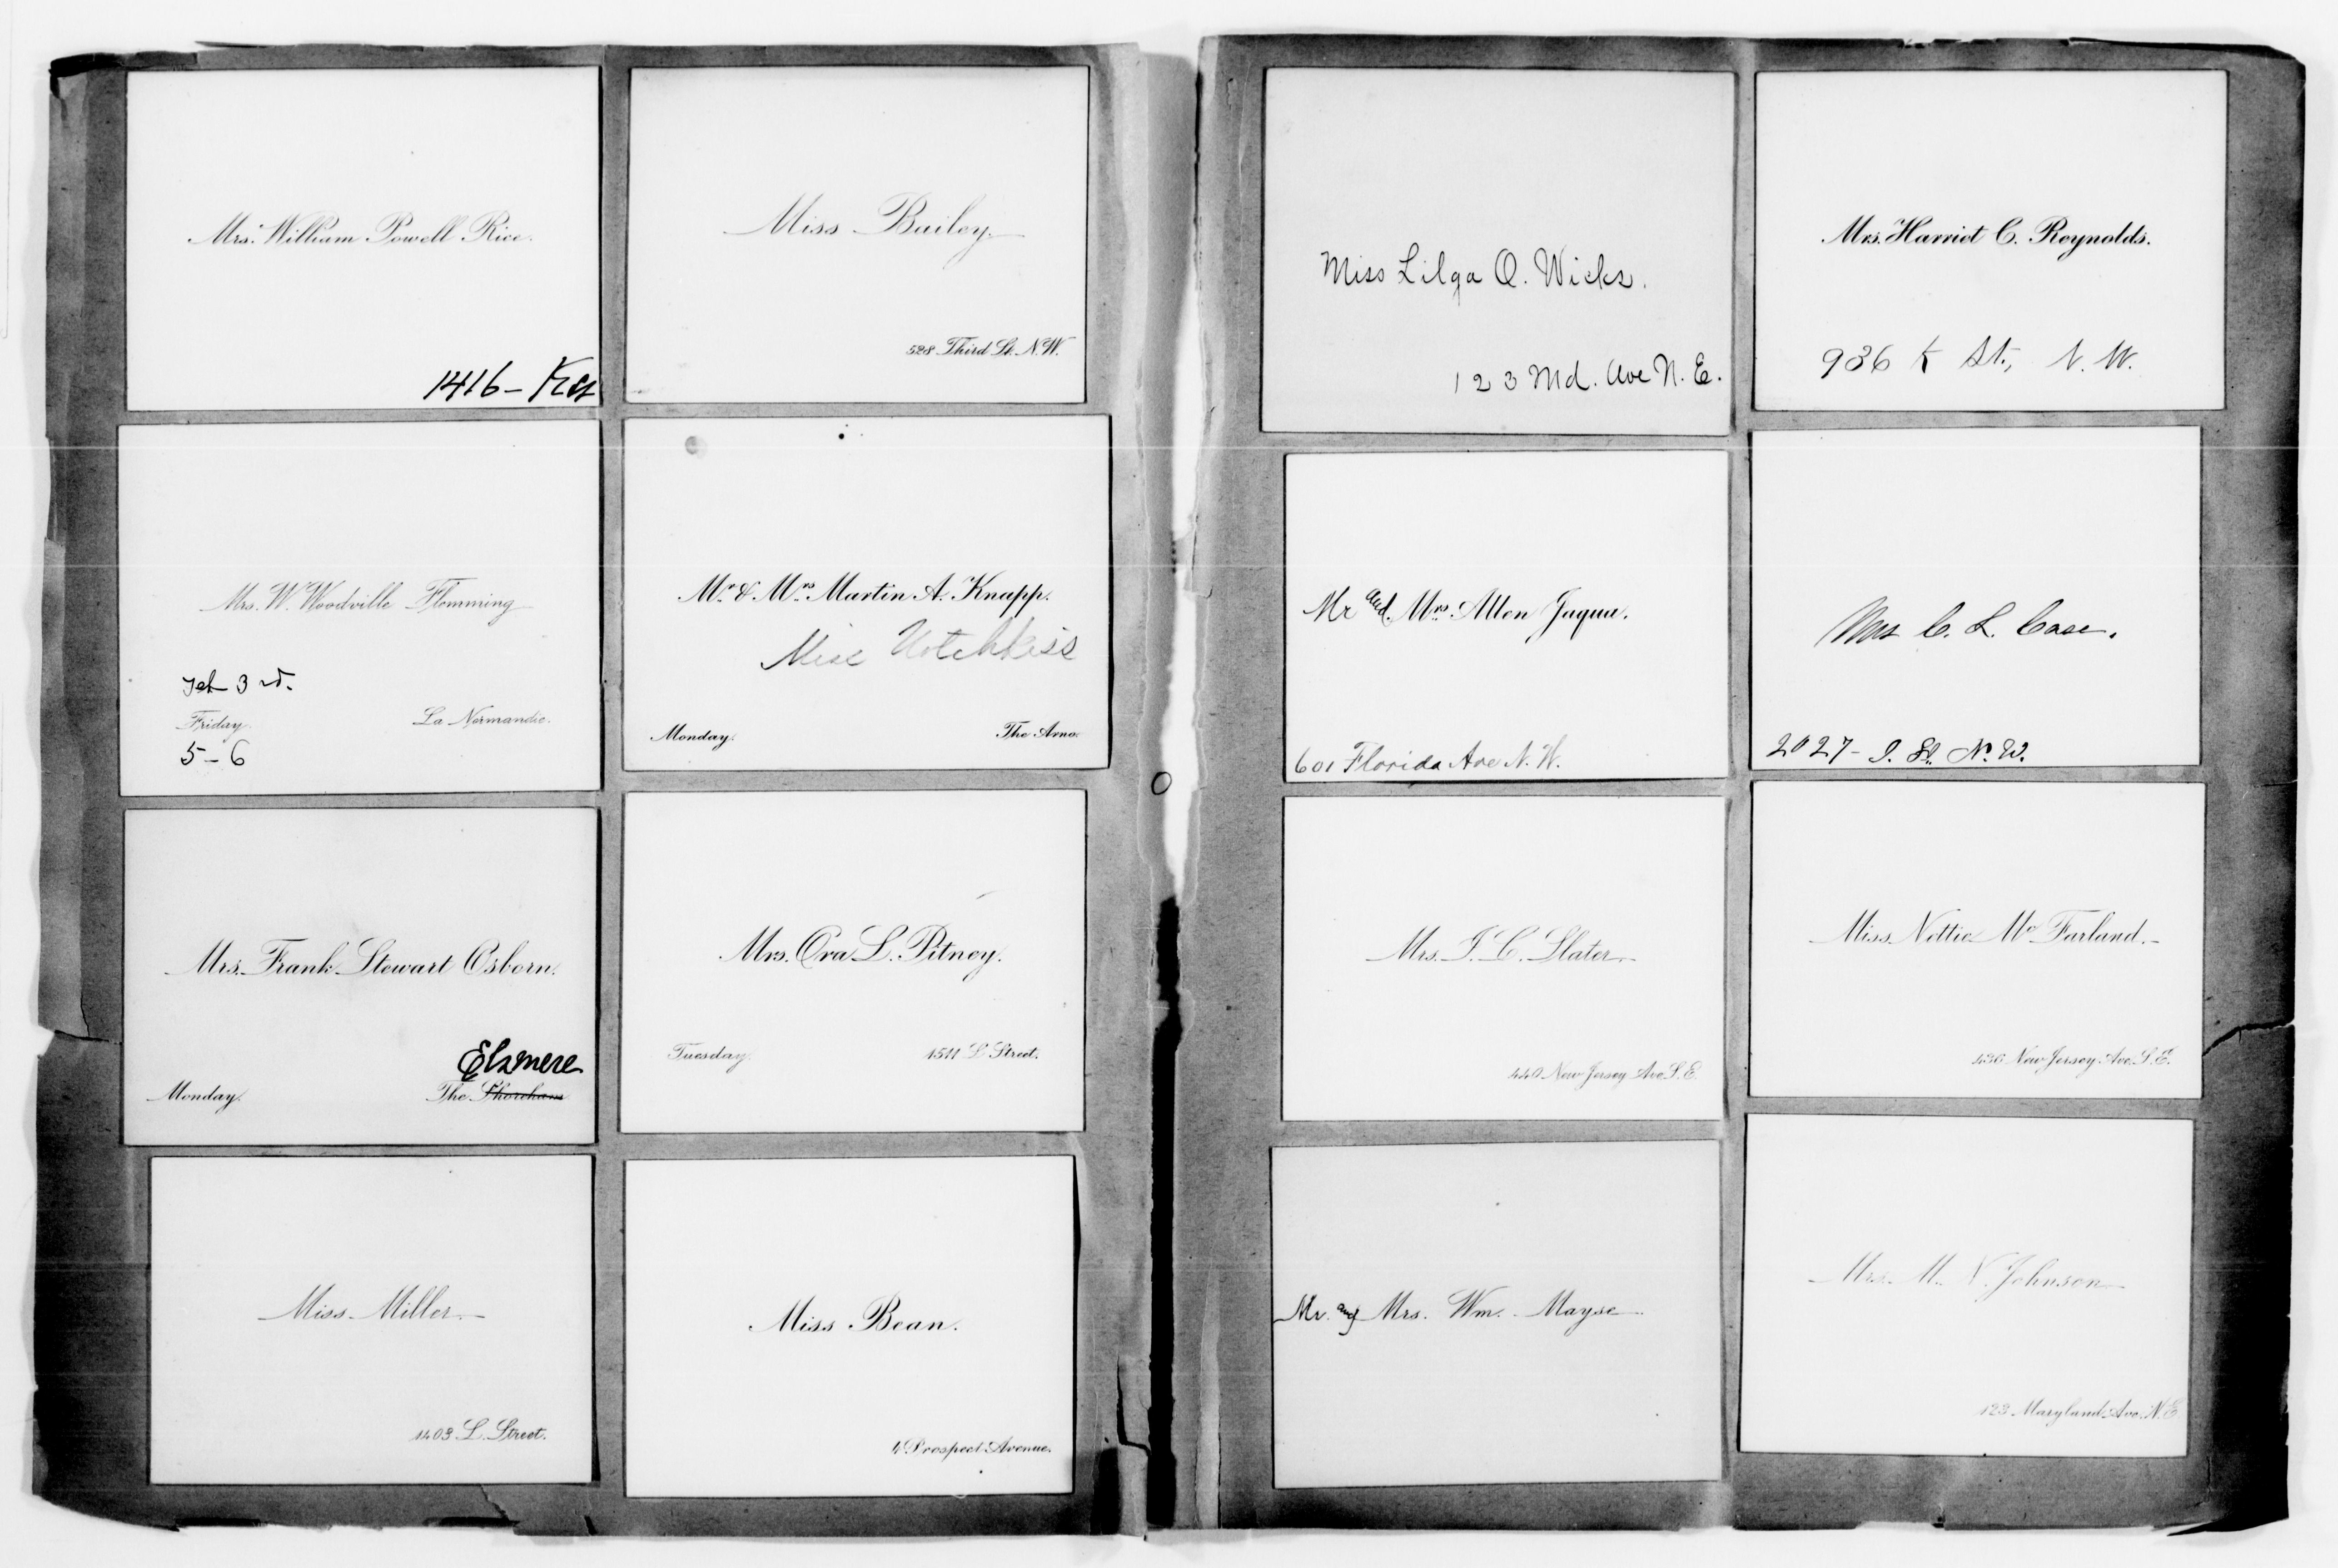 Mrs. William Powell Rice.
1416-
Miss Bailey.
528 Third St. N.W.
Mrs. W. Woodville Flemming
Feb 3rd.
Friday.
La Normandie.
5-6
Mr. & Mrs. Martin A. Knapp.
Miss Hotchkiss
Monday.
The Arno.
Mrs. Frank Stewart Osborn.
Elsmere
Monday.
The Shoreham
Mrs. Ora L. Pitney.
Tuesday.
1511 L Street.
Miss Miller.
1403 L. Street.
Miss Bean.
4 Prospect Avenue.
Miss Lilga Q. Wicks.
123 Md. Ave N.E.
Mrs. Harriet C. Reynolds.
936 K St., N.W.
Mr and Mrs. Allen Jaqua.
601 Florida Ave N.W.
Mrs C. L. Case.
2027- I. St. N.W.
Mrs. I. C. Slater.
440 New Jersey Ave. S.E.
Miss Nettie McFarland.
436 New Jersey Ave. S.E.
Mr. and Mrs. Wm. Mayse
Mrs. M. N. Johnson
123 Maryland Ave. N.E.